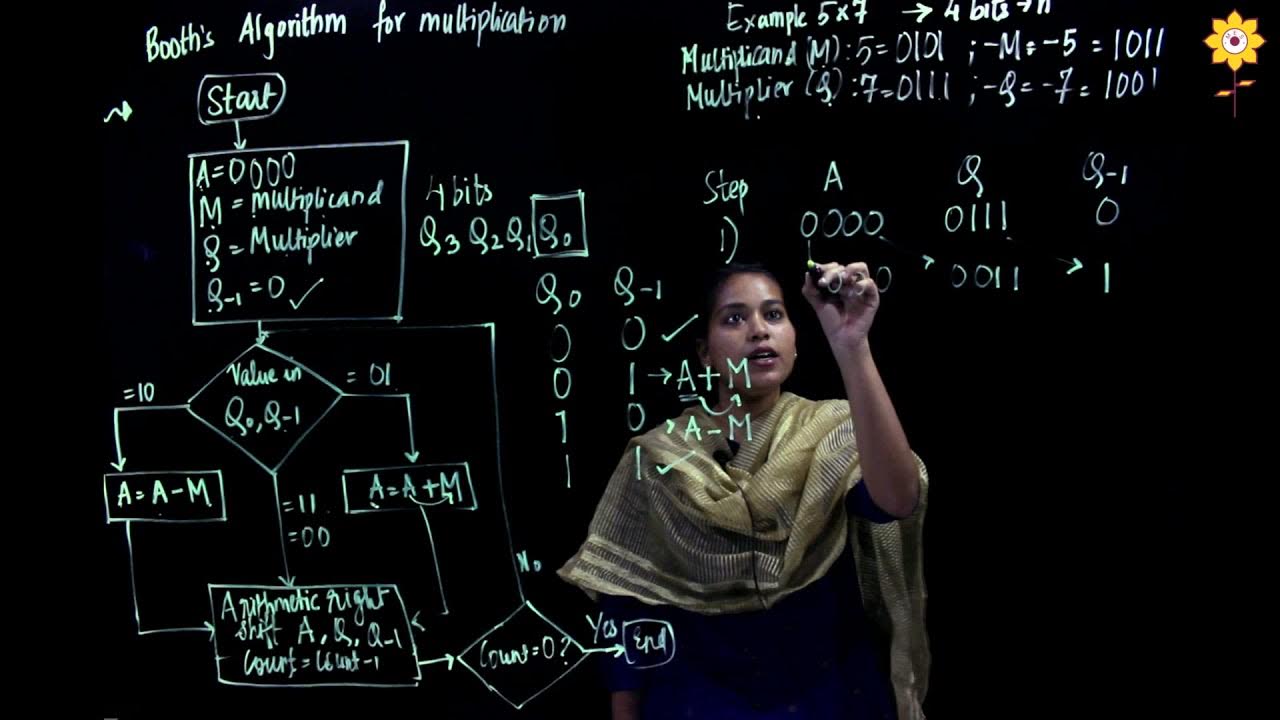 Booth's Algorithm for multiplication
Start
A=0000
M = multiplicand
Q = Multiplier
Q-1 = 0 ✓
Value in
Q0, Q-1
=10
= 01
A = A - M
A = A + M
=11
=00
Arithmetic right
shift A, Q, Q-1
Count = Count-1
Count=0?
No
Yes
End
4 bits
Q3 Q2 Q1 Q0
Q0 Q-1
0 0 ✓
0 1 → A + M
1 0 → A - M
1 1 ✓
Example 5x7 → 4 bits → n
Multiplicand (M) : 5 = 0101 ; -M = -5 = 1011
Multiplier (Q) : 7 = 0111 ; -Q = -7 = 1001
Step A Q Q-1
1) 0000 0111 0
0011 → 1